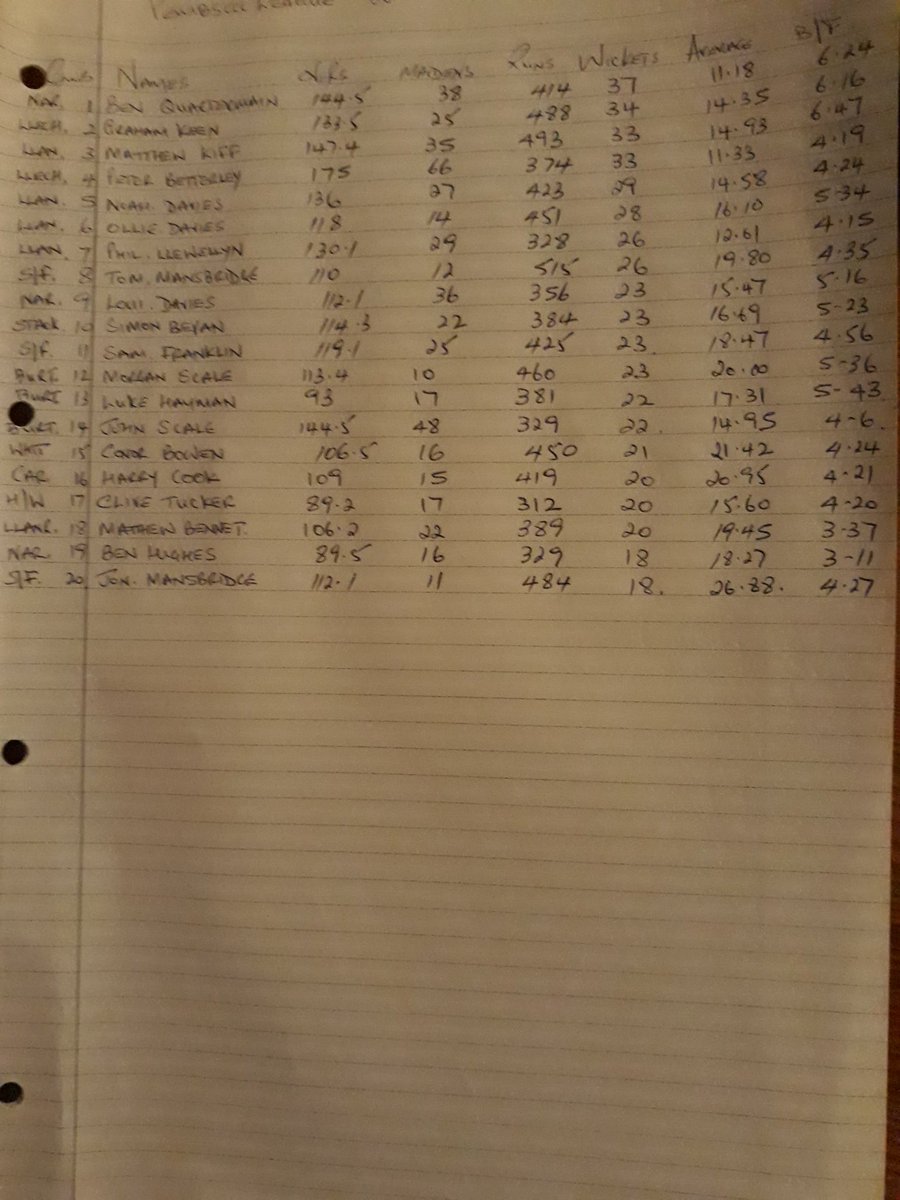 LEAGUE
CLUB NAMES OVRS MAIDENS RUNS WICKETS AVERAGE B/F
NAR. 1 BEN QUARTERMAIN 144.5 38 414 37 11.18 6.24
LLECH. 2 GRAHAM KEEN 133.5 25 488 34 14.35 6.16
LLAN. 3 MATTHEW KIFF 147.4 35 493 33 14.93 6.47
LLECH. 4 PETER BETTERLEY 175 66 374 33 11.33 4.19
LLAN. 5 NOAH. DAVIES 136 27 423 29 14.58 4.24
LLAN. 6 OLLIE DAVIES 118 14 451 28 16.10 5-34
LLAN. 7 PHIL. LLEWELLYN 130.1 29 328 26 12.61 4.15
S/F. 8 TOM. MANSBRIDGE 110 12 515 26 19.80 4.35
NAR. 9 LOUI. DAVIES 112.1 36 356 23 15.47 5-16
STACK 10 SIMON BEVAN 114.3 22 384 23 16.69 5-23
S/F. 11 SAM. FRANKLIN 119.1 25 425 23. 18.47 4.56
BURT. 12 MORGAN SCALE 113.4 10 460 23 20.00 5-36
BURT 13 LUKE HAYMAN 93 17 381 22 17.31 5-43
BURT. 14 JOHN SCALE 144.5 48 329 22. 14.95 4-6.
WHIT 15 CONOR BOWEN 106.5 16 450 21 21.42 4.24
CAR 16 HARRY COOK 109 15 419 20 20.95 4-21
H/W 17 CLIVE TUCKER 89.2 17 312 20 15.60 4-20
LLANR. 18 MATHEW BENNET. 106.2 22 389 20 19.45 3-37
NAR. 19 BEN HUGHES 89.5 16 329 18 18.27 3-11
S/F. 20 JON. MANSBRIDGE 112.1 11 484 18. 26.88. 4.27